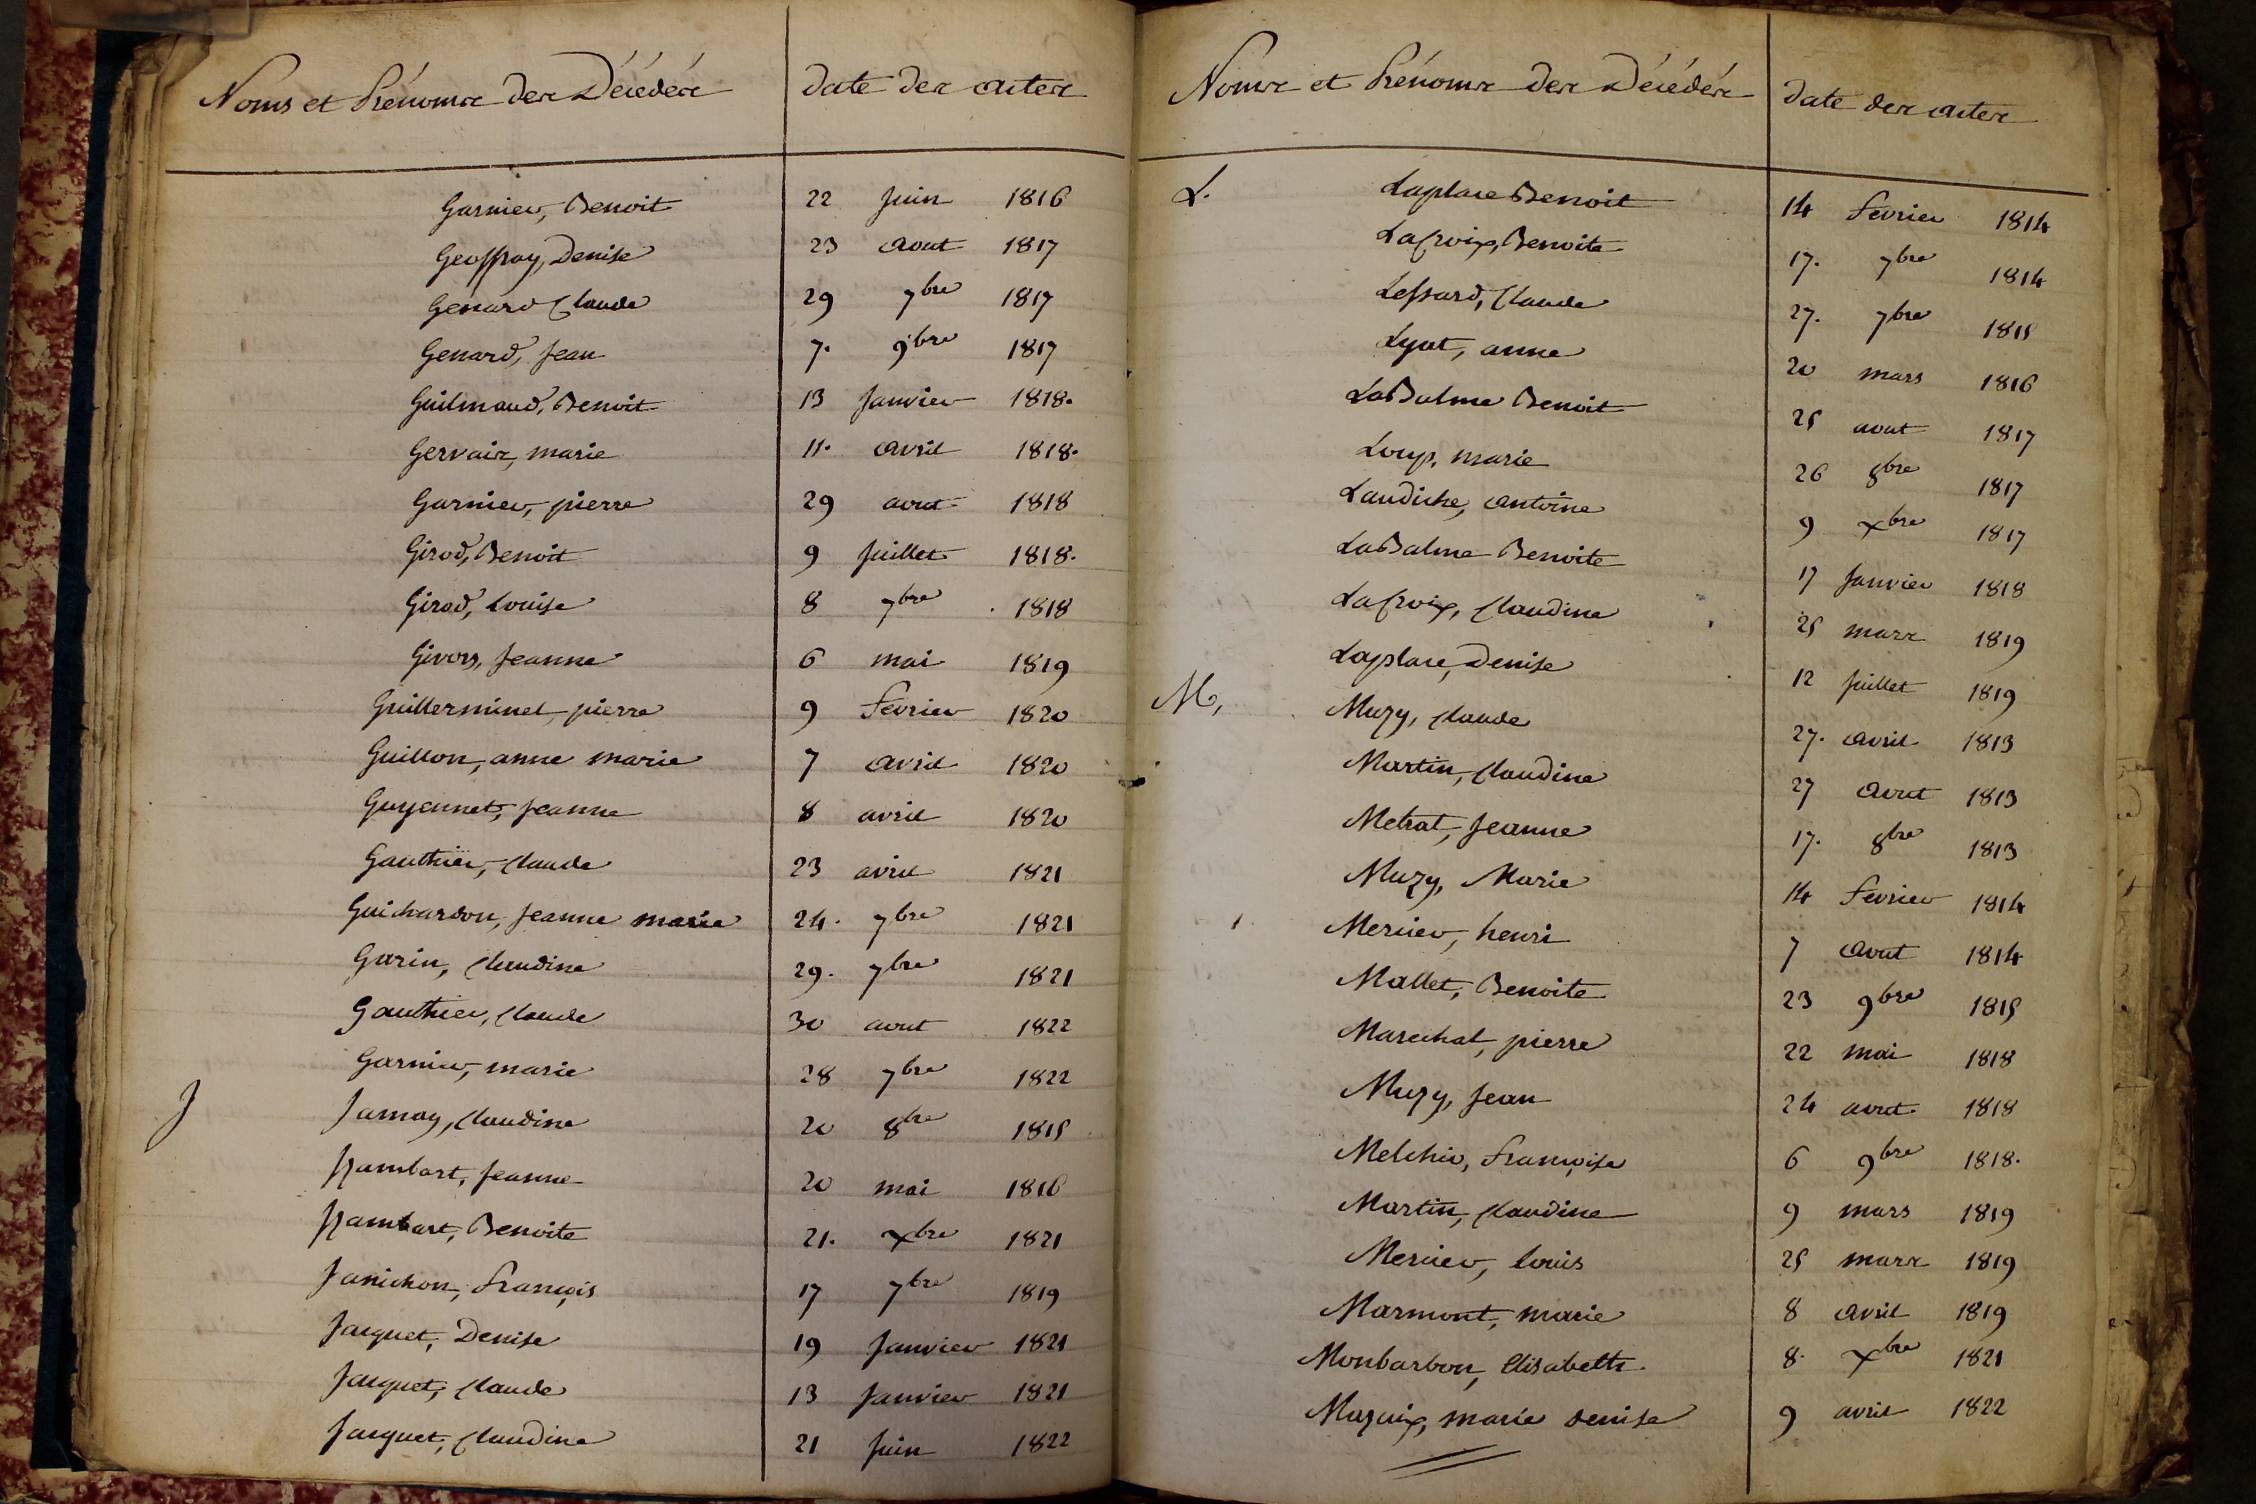 Noms et Prénoms des Décédés date des actes
Garnier, Benoit 22 Juin 1816
Geoffray, Denise 23 aout 1817
Genard Claude 29 7bre 1817
Genard, Jean 7. 9bre 1817
Guilmaud, Benoit 13 Janvier 1818.
Gervais, marie 11. avril 1818.
Garnier, pierre 29 aout 1818
Girod, Benoit 9 Juillet 1818.
Girod, Louise 8 7bre 1818
Givors, Jeanne 6 mai 1819
Guillerminet, pierre 9 Fevrier 1820
Guillon, anne marie 7 avril 1820
Guyennet, Jeanne 8 avril 1820
Gauthier, Claude 23 avril 1821
Guichardon, Jeanne marie 24. 7bre 1821
Garin, Claudine 29. 7bre 1821
Gauthier, Claude 30 aout 1822
Garnier, marie 28 7bre 1822
J Jamay, Claudine 20 8bre 1815
Jambart, Jeanne 20 mai 1816
Jambart, Benoite 21. Xbre 1821
Janichon, François 17 7bre 1819
Jacquet, Denise 19 Janvier 1821
Jacquet, Claude 13 Janvier 1821
Jacquet, Claudine 21 Juin 1822
Noms et Prénoms des Décédés date des actes
L. Laplace Benoit 14 Fevrier 1814
LaCroix, Benoite 17. 7bre 1814
Lessard, Claude 27. 7bre 1815
Lyat, anne 20 mars 1816
LaBalme Benoit 25 aout 1817
Loup, marie 26 8bre 1817
Laudiche, antoine 9 Xbre 1817
LaBalme Benoite 17 Janvier 1818
LaCroix, Claudine 25 mars 1819
Laplace, Denise 12 Juillet 1819
M, Muzy, Claude 27. avril 1813
Martin, Claudine 27 aout 1813
Metrat, Jeanne 17. 8bre 1813
Muzy, Marie 14 Fevrier 1814
Mercier, henri 7 aout 1814
Mallet, Benoite 23 9bre 1815
Marechal, pierre 22 mai 1818
Muzy, Jean 24 aout 1818
Melchior, Françoise 6 9bre 1818.
Martin, Claudine 9 mars 1819
Mercier, Louis 25 mars 1819
Marmont, marie 8 avril 1819
Monbarbon, Elisabeth. 8. Xbre 1821
marie denise 9 avril 1822